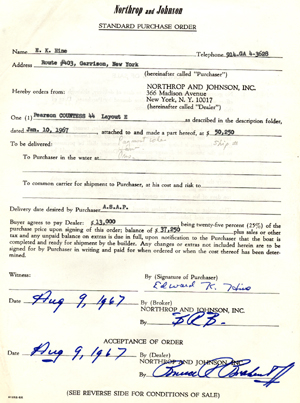 Northrop and Johnson
STANDARD PURCHASE ORDER
Name E. K. Hine Telephone 914.GA 4-3628
Address Route #403, Garrison, New York
(hereinafter called "Purchaser")
Hereby orders from:
NORTHROP AND JOHNSON, INC.
366 Madison Avenue
New York, N. Y. 10017
(hereinafter called "Dealer")
One (1) Pearson COUNTESS 44 Layout E as described in the description folder,
dated Jan. 10, 1967, attached to and made a part hereof, at $ 50,250
To be delivered:
To Purchaser in the water at
To common carrier for shipment to Purchaser, at his cost and risk to
Delivery date desired by Purchaser A.S.A.P.
Buyer agrees to pay Dealer: $ 13,000 being twenty-five percent (25%) of the
purchase price upon signing of this order; balance of $ 37,250 plus sales or other
tax and any unpaid balance on extras due in full, upon notification to Purchaser that the boat is
completed and ready for shipment by the builder. Any changes or extras not included herein are to be
signed for by Purchaser in writing and paid for when ordered or when the cost thereof has been deter-
mined.
Witness: By (Signature of Purchaser)
Edward K. Hine
Date Aug 9, 1967 By (Broker)
NORTHROP AND JOHNSON, INC.
By
ACCEPTANCE OF ORDER
Date Aug 9, 1967 By (Dealer)
NORTHROP AND JOHNSON, INC.
By
(SEE REVERSE SIDE FOR CONDITIONS OF SALE)